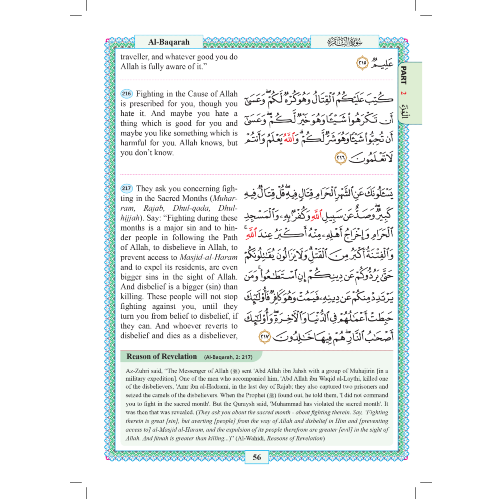 Al-Baqarah
سورة البقرة
traveller, and whatever good you do
Allah is fully aware of it."
عَلِيمٌ ٢١٥
PART 2
216 Fighting in the Cause of Allah
is prescribed for you, though you
hate it. And maybe you hate a
thing which is good for you and
maybe you like something which is
harmful for you. Allah knows, but
you don't know.
كُتِبَ عَلَيْكُمُ ٱلْقِتَالُ وَهُوَ كُرْهٌ لَّكُمْ وَعَسَىٰٓ
أَن تَكْرَهُوا۟ شَيْـًٔا وَهُوَ خَيْرٌ لَّكُمْ وَعَسَىٰٓ
أَن تُحِبُّوا۟ شَيْـًٔا وَهُوَ شَرٌّ لَّكُمْ وَٱللَّهُ يَعْلَمُ وَأَنتُمْ
لَا تَعْلَمُونَ ٢١٦
217 They ask you concerning figh-
ting in the Sacred Months (Muhar-
ram, Rajab, Dhul-qada, Dhul-
hijjah). Say: "Fighting during these
months is a major sin and to hin-
der people in following the Path
of Allah, to disbelieve in Allah, to
prevent access to Masjid al-Haram
and to expel its residents, are even
bigger sins in the sight of Allah.
And disbelief is a bigger (sin) than
killing. These people will not stop
fighting against you, until they
turn you from belief to disbelief, if
they can. And whoever reverts to
disbelief and dies as a disbeliever,
يَسْـَٔلُونَكَ عَنِ ٱلشَّهْرِ ٱلْحَرَامِ قِتَالٍ فِيهِ قُلْ قِتَالٌ فِيهِ
كَبِيرٌ وَصَدٌّ عَن سَبِيلِ ٱللَّهِ وَكُفْرٌۢ بِهِۦ وَٱلْمَسْجِدِ
ٱلْحَرَامِ وَإِخْرَاجُ أَهْلِهِۦ مِنْهُ أَكْبَرُ عِندَ ٱللَّهِ
وَٱلْفِتْنَةُ أَكْبَرُ مِنَ ٱلْقَتْلِ وَلَا يَزَالُونَ يُقَـٰتِلُونَكُمْ
حَتَّىٰ يَرُدُّوكُمْ عَن دِينِكُمْ إِنِ ٱسْتَطَـٰعُوا۟ وَمَن
يَرْتَدِدْ مِنكُمْ عَن دِينِهِۦ فَيَمُتْ وَهُوَ كَافِرٌ فَأُو۟لَـٰٓئِكَ
حَبِطَتْ أَعْمَـٰلُهُمْ فِى ٱلدُّنْيَا وَٱلْـَٔاخِرَةِ وَأُو۟لَـٰٓئِكَ
أَصْحَـٰبُ ٱلنَّارِ هُمْ فِيهَا خَـٰلِدُونَ ٢١٧
Reason of Revelation (Al-Baqarah, 2: 217)
Az-Zuhri said, "The Messenger of Allah (ﷺ) sent 'Abd Allah ibn Jahsh with a group of Muhajirin [in a
military expedition]. One of the men who accompanied him, 'Abd Allah ibn Waqid al-Laythi, killed one
of the disbelievers, 'Amr ibn al-Hadrami, in the last day of Rajab; they also captured two prisoners and
seized the camels of the disbelievers. When the Prophet (ﷺ) found out, he told them, 'I did not command
you to fight in the sacred month'. But the Quraysh said, 'Muhammad has violated the sacred month'. It
was then that was revealed. (They ask you about the sacred month - about fighting therein. Say, 'Fighting
therein is great [sin], but averting [people] from the way of Allah and disbelief in Him and [preventing
access to] al-Masjid al-Haram, and the expulsion of its people therefrom are greater [evil] in the sight of
Allah. And fitnah is greater than killing...)" (Al-Wahidi, Reasons of Revelation)
56